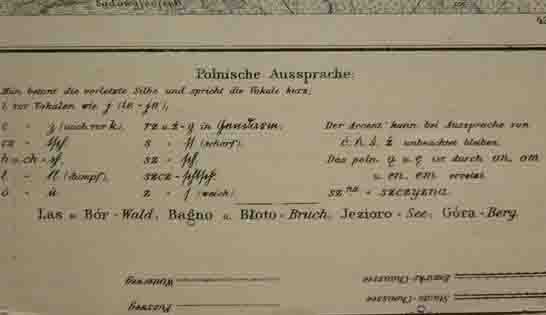 Polnische Aussprache:
Man betont die vorletzte Silbe und spricht die Vokale kurz;
i vor Vokalen wie j (ie - je),
c - z (auch vor k), rz u. ż - g in Gendarm, Der Accent kann bei Aussprache von
cz - tsch, s - ß (scharf), ć, ń, ś, ź unbeachtet bleiben.
h u. ch - ch, sz - sch, Das poln. ą u. ę ist durch on, om
ł - ll (dumpf), szcz - schtsch, u. en, em ersetzt.
ó - u z - s (weich) sz - szczyzna.
Las u. Bór - Wald, Bagno u. Błoto - Bruch, Jezioro - See, Góra - Berg.
Bezirks-Chaussee
Staats-Chaussee